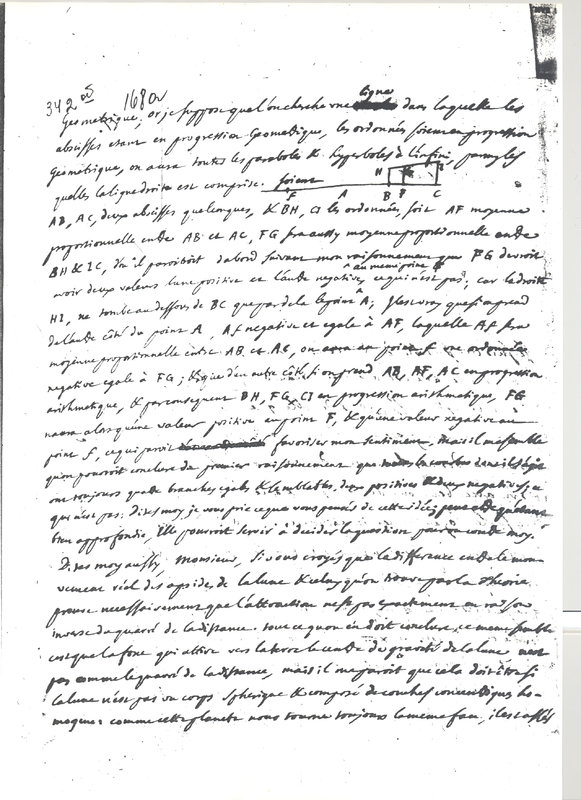 342 168av
ligne
Geometrique, or je suppose que l'on cherche une dans laquelle les
abscisses etant en progression Geometrique, les ordonnées soient en progression
Geometrique, on aura toutes les paraboles & hyperboles à l'infini, parmy les
quelles la ligne droite est comprise. soient
H G I
f A B F C
AB, AC, deux abscisses quelconques, & BH, CI les ordonnées, soit AF moyenne
proportionelle entre AB et AC, FG sera aussy moyenne proportionelle entre
BH & IC, d'ou il paroitroit d'abord suivant mon raisonnement que FG devroit
au meme point F
avoir deux valeurs l'une positive et l'autre negative, ce qui n'est pas, car la droite
HI, ne tombe au dessous de BC que par dela le point A; il est vray que si on prend
de l'autre côté du point A, Af negative et egale à AF, laquelle Af sera
moyenne proportionelle entre AB et AC, on aura au point f une ordonnée
negative egale à FG; & que d'un autre côté si on prend AB, AF, AC en progression
arithmetique, & par consequent BH, FG, CI en progression arithmetique, FG
n'aura alors qu'une valeur positive au point F, & qu'une valeur negative au
point f, ce qui paroit favoriser mon sentiment, mais il me semble
qu'on pourroit conclure du premier raisonnement que
ont toujours quatre branches egales & semblables, deux positives & deux negatives, ce
qui n'est pas. Dites moy je vous prie ce que vous pensés de cette idée;
bien approfondie, elle pourroit servir à decider la question
Dites moy aussy, Monsieur, si vous croyés que la difference entre le mou-
vement réel des apsides de la lune & celuy qu'on trouve par la theorie
prouve necessairement que l'attraction n'est pas exactement en raison
inverse du quarré de la distance. tout ce qu'on en doit conclure, ce me semble
c'est que la force qui attire vers la terre le centre de gravité de la lune n'est
pas comme le quarré de la distance, mais il me paroit que cela doit être si
la lune n'est pas un corps spherique & composé de couches concentriques ho-
mogenes: comme cette planete nous tourne toujours la meme face, il est assés